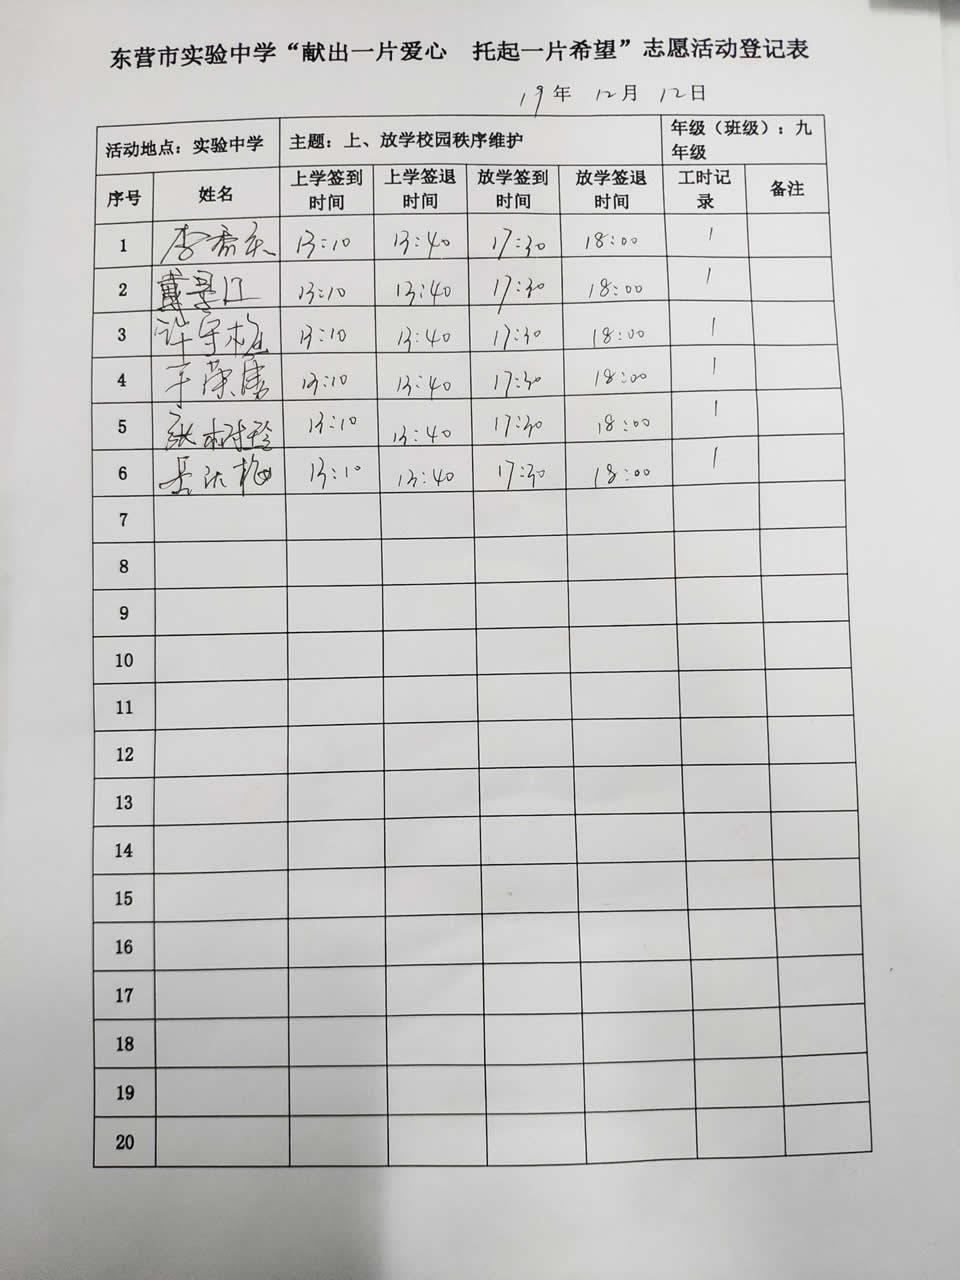 东营市实验中学“献出一片爱心 托起一片希望”志愿活动登记表
19年 12月 12日
活动地点：实验中学 主题：上、放学校园秩序维护 年级（班级）：九年级
序号 姓名 上学签到时间 上学签退时间 放学签到时间 放学签退时间 工时记录 备注
1 李 13:10 13:40 17:30 18:00 1
2 戴 13:10 13:40 17:30 18:00 1
3 许守 13:10 13:40 17:30 18:00 1
4 荣 13:10 13:40 17:30 18:00 1
5 张树玲 13:10 13:40 17:30 18:00 1
6 梅 13:10 13:40 17:30 18:00 1
7
8
9
10
11
12
13
14
15
16
17
18
19
20